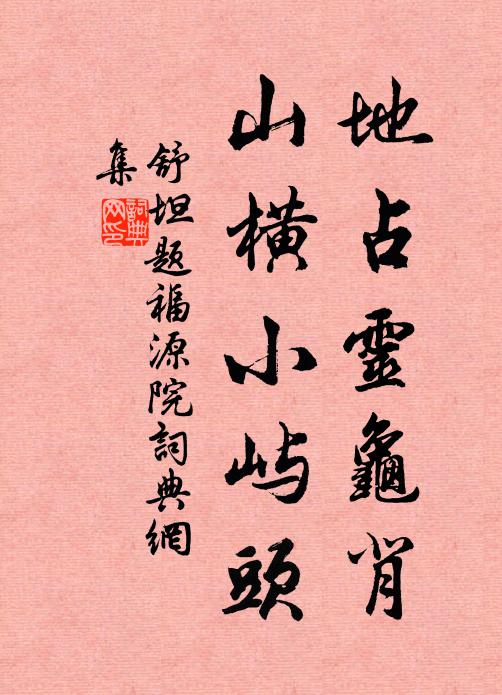 地占靈龜背
山橫小屿頭
舒坦题福源院詞典網
集
詞典
网印